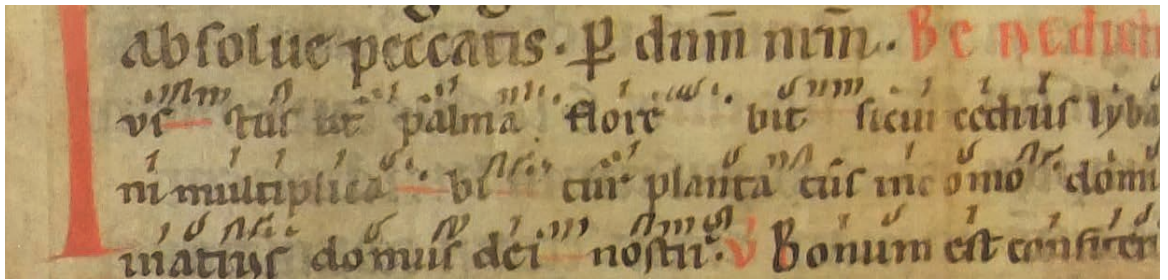 absolue peccatis. ꝑ dnm̄ nrm̄. Benedicti
Ivs tus ut palma flore bit sicut cedrus lyba
ni multiplica bi tur planta tus in domo domi
in atriis domus dei nostri. v Bonum est confiteri